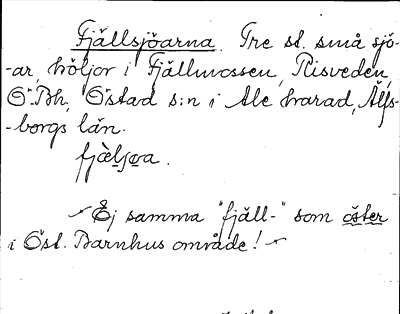 Fjällsjöarna. Tre st. små sjö-
-ar, höljor i Fjällmossen, Risveden,
Ö. Bh, Östad s:n i Ale härad, Älfs-
-borgs län.
fjælsjœa.
Ej samma "fjäll-" som öster
i Öst. Barnhus område!